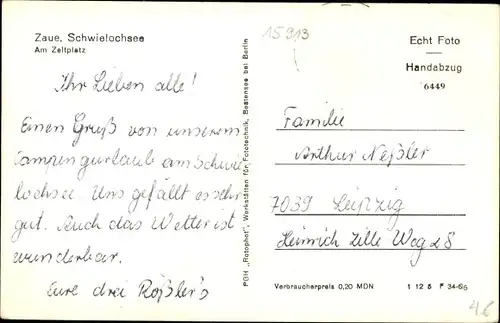 Zaue, Schwielochsee
Am Zeltplatz
Ihr Lieben alle!
Einen Gruß von unserem
Campingurlaub am Schwie
lochsee. Uns gefällt es sehr
gut. Auch das Wetter ist
wunderbar.
Eure drei Rößler's
PGH „Rotophot", Werkstätten für Fototechnik, Bestensee bei Berlin
15913
Echt Foto
Handabzug
6449
Familie
Arthur Neßler
7039 Leipzig
Heinrich Zille Weg 28
Verbraucherpreis 0,20 MDN
1 12 5 F 34-66